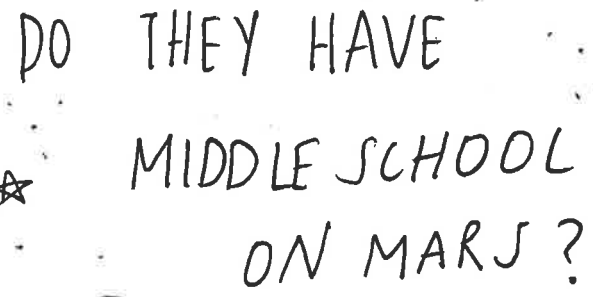 DO THEY HAVE
MIDDLE SCHOOL
ON MARS?